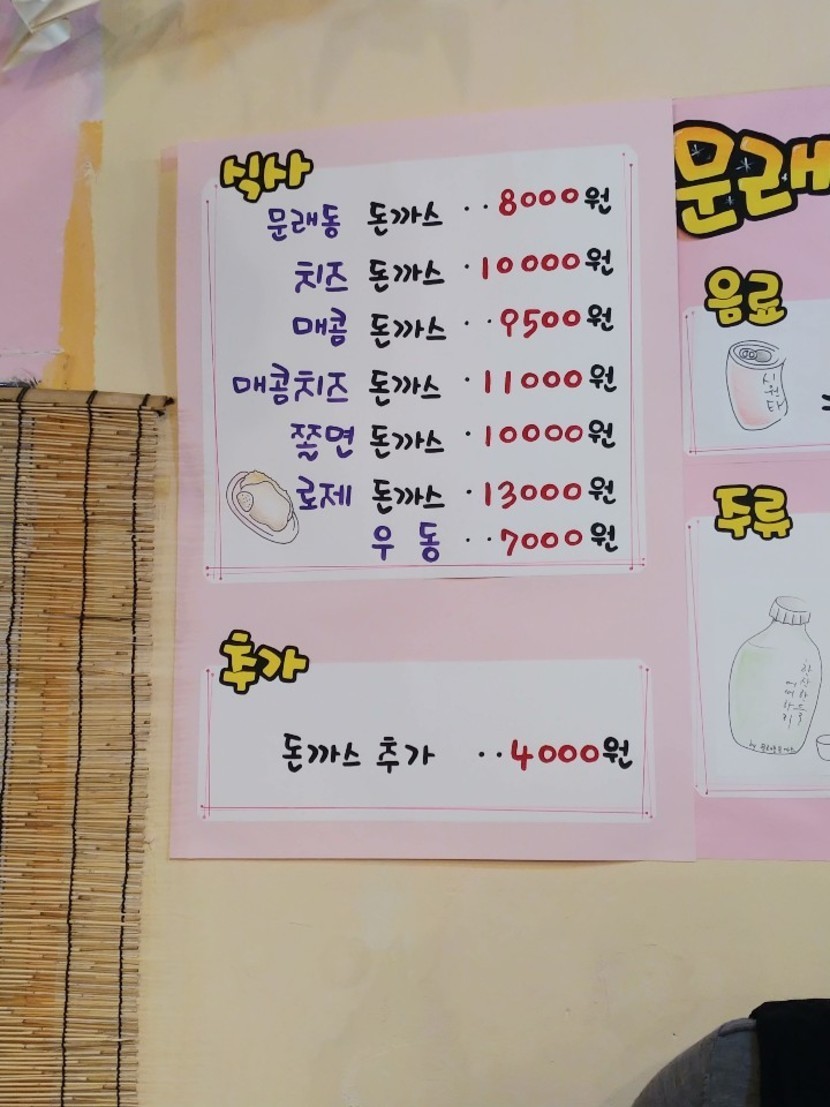 식사
문래동 돈까스 ··8000원
치즈 돈까스 ·10000원
매콤 돈까스 ··9500원
매콤치즈 돈까스 ·11000원
쫄면 돈까스 ·10000원
로제 돈까스 ·13000원
우동 ··7000원
추가
돈까스 추가 ··4000원
문래
음료
시원타
주류